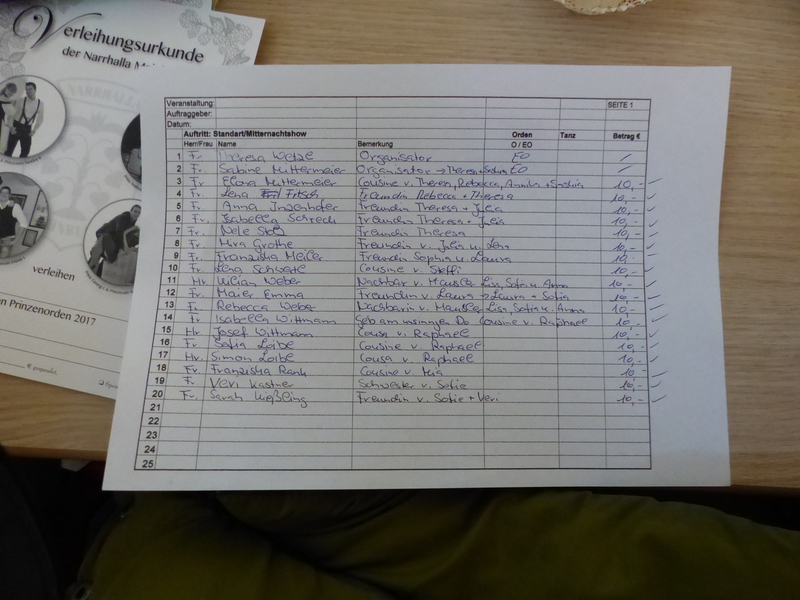 Verleihungsurkunde
der Narrhalla
verleihen
Prinzenorden 2017
Veranstaltung: SEITE 1
Auftraggeber:
Datum:
Auftritt: Standart/Mitternachtshow Orden Tanz Betrag €
Herr/Frau Name Bemerkung O / EO
1 Fr. Theresa Organisator EO /
2 Fr. Sabine Mittermeier Organisator → EO /
3 Fr. Elona Mittermeier Cousine v. Theresa, Rebecca, Annika + 10,-
4 Fr. Lena Fritsch Freundin Rebecca + Theresa 10,-
5 Fr. Anna Freundin Theresa + Julia 10,-
6 Fr. Isabella Schreck Freundin Theresa + Julia 10,-
7 Fr. Nele Freundin Theresa 10,-
8 Fr. Mira Grothe Freundin v. Julia u. Lena 10,-
9 Fr. Franziska Meiler Freundin Sophia u. Laura 10,-
10 Fr. Lena Cousine v. Steffi 10,-
11 Hr. Weber Nachbar v. Lisa, Sofie u. Anna 10,-
12 Fr. Maier Emma Freundin v. Laura → Laura + Sofia 10,-
13 Fr. Rebecca Weber Nachbarin v. Lisa, Sofie u. Anna 10,-
14 Fr. Isabella Wittmann Geb am unsinnigen Do Cousine v. Raphael 10,-
15 Hr. Josef Wittmann Cousa v. Raphael 10,-
16 Fr. Sofia Loibe Cousine v. Raphael 10,-
17 Hr. Simon Loibe Cousa v. Raphael 10,-
18 Fr. Franziska Rank Cousine v. Mia 10,-
19 Fr. Veri Kastner Schwester v. Sofie 10,-
20 Fr. Sarah Kießling Freundin v. Sofie + Veri 10,-
21
22
23
24
25